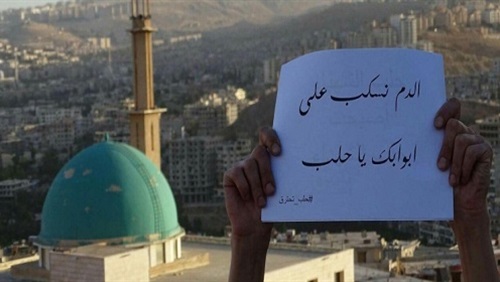 الدم نسكب على
ابوابك يا حلب
#حلب_تحترق